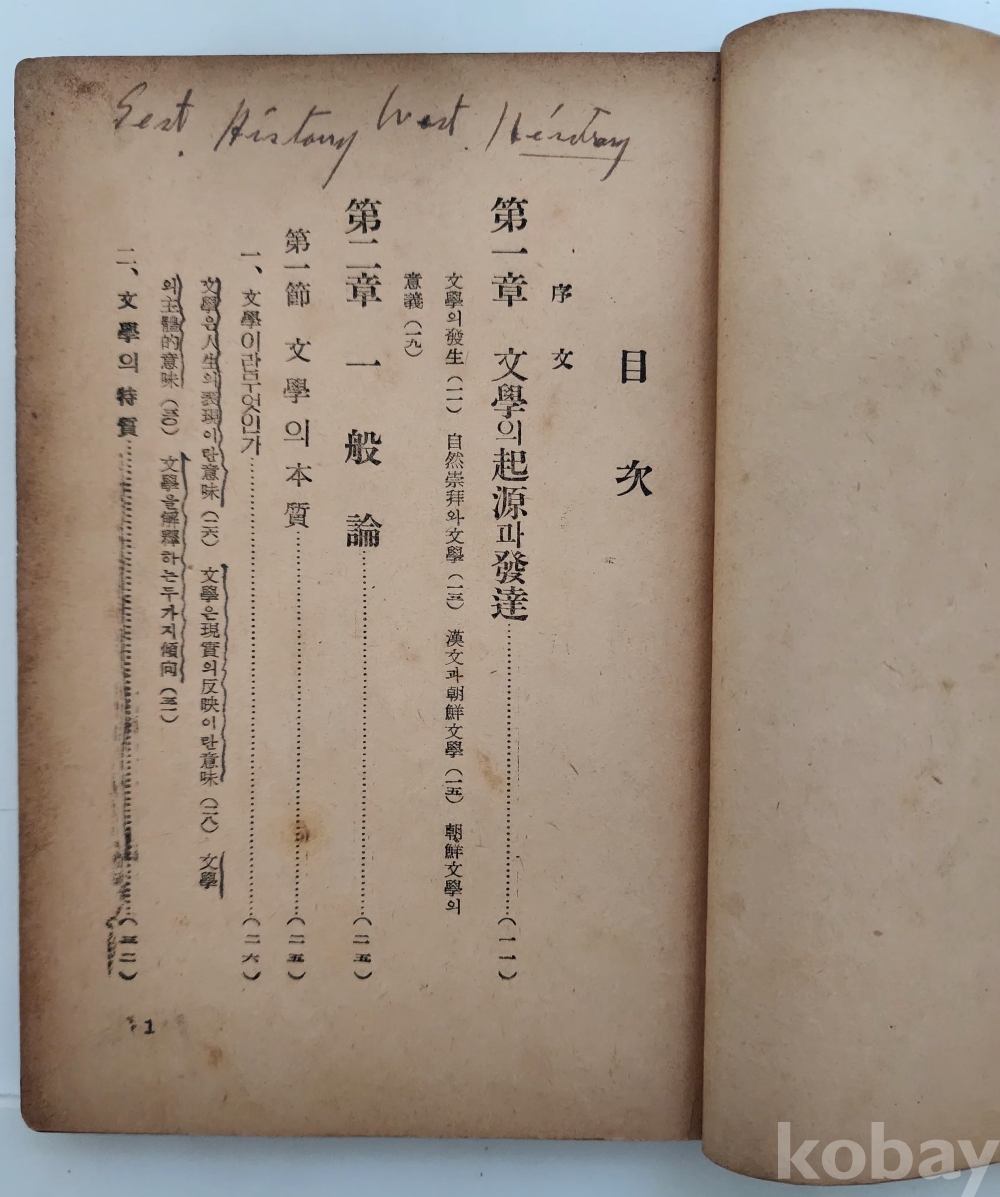 East. History West. History
目次
序文
第一章 文學의起源과發達……(一一)
文學의發生(一一) 自然崇拜와文學(一三) 漢文과朝鮮文學(一五) 朝鮮文學의
意義(一九)
第二章 一般論……(二五)
第一節 文學의本質……(二五)
一、文學이란무엇인가……(二六)
文學은人生의表現이란意味(二六) 文學은現實의反映이란意味(二八) 文學
의主體的意味(三〇) 文學을解釋하는두가지傾向(三一)
二、文學의特質……(三二)
1
kobay